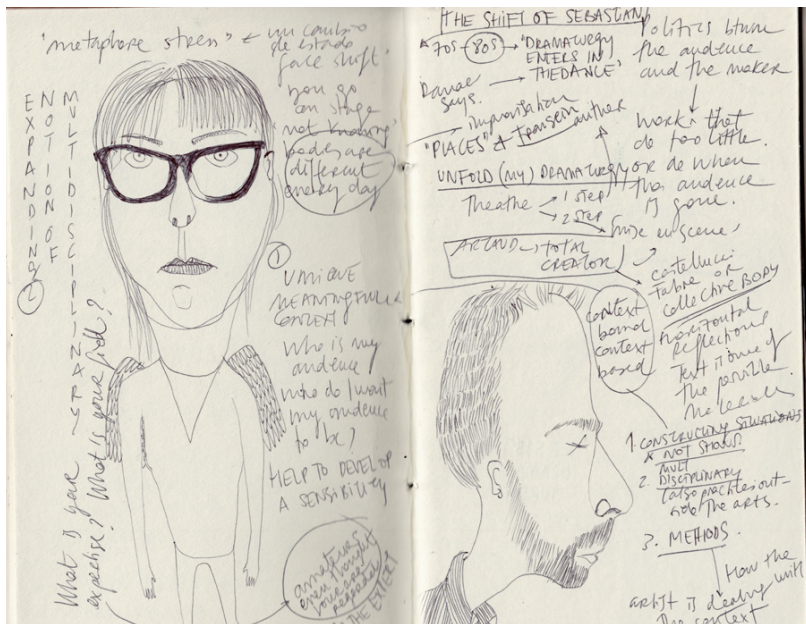 "metaphore stress"
un cambio
de estado
face shift"
you go
on stage
not knowing"
bodies are
different
every day
EXPANDING
NOTION OF
MULTIDISCIPLINARY
2
What is your
expertise? What is your field?
1
UNIQUE
MEANINGFULL
CONTEXT
Who is my
audience
who do I want
my audience
to be?
HELP TO DEVELOP
A SENSIBILITY
amateurs
even thought
you are
THE EXPERT
THE SHIFT OF SEBASTIAN
70s - 80s → "DRAMATURGY
ENTERS IN
THE DANCE"
Danae
says.
improvisation
"PLACES" &
author
UNFOLD (MY) DRAMATURGY
Theathe → 1 step
→ 2 step
mise en scene,
ARTAUD → TOTAL
CREATOR
Politics btwn
the audience
and the maker
works that
do too little.
or do when
the audience
is gone.
castellucci
Fabre or
collective BODY
context
bound
context
based
Horizontal
Reflections
Text is one of
the possible
materials
1. CONSTRUCTING SITUATIONS
& NOT SHOWS
2. MULT
DISCIPLINARY
(also practices out-
side the arts.
3. METHODS.
How the
artist is dealing with
the context